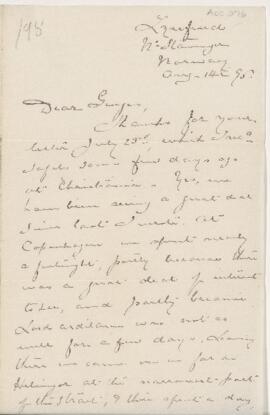 198
Nr Stavanger
Norway
Aug. 14th 95.
Dear Ginger,
Thanks for your
letter July 23rd, which I rec
some few days ago
at Christiania. Yes, we
have been seeing a great deal
since last I wrote. At
Copenhagen we spent nearly
a fortnight, partly because there
was a great deal of interest
to see, and partly because
Lord Ardilaun was not so
well for a few days. Leaving
there we came on as far as
Helsingor at the narrowest part
of the Strait, & there spent a day